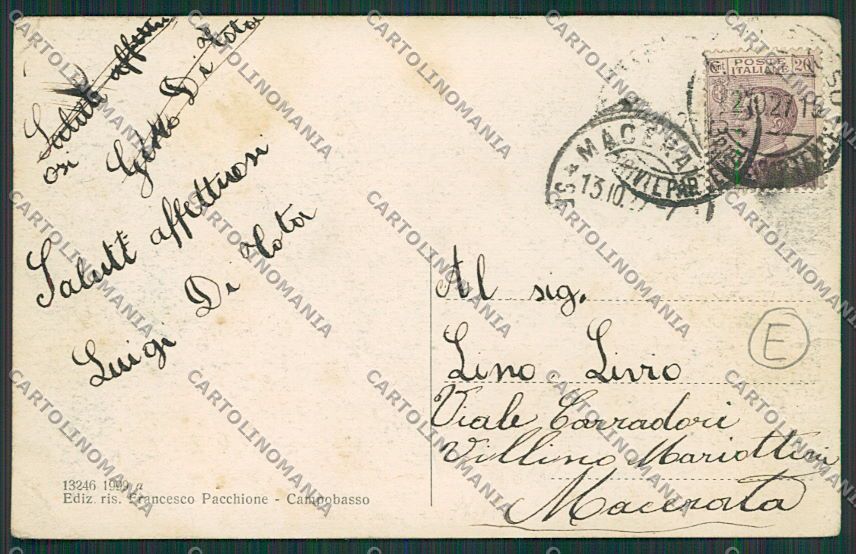 Saluti affettu
osi Gino Di Tota
Saluti affettuosi
Luigi Di Tota
13246 1909 a
Ediz. ris. Francesco Pacchione - Campobasso
C. POSTE 20
ITALIANE
MACERATA
13.10.27
Al sig.
Lino Livio
Viale Carradori
Villino Mariottini
Macerata
E
CARTOLINOMANIA